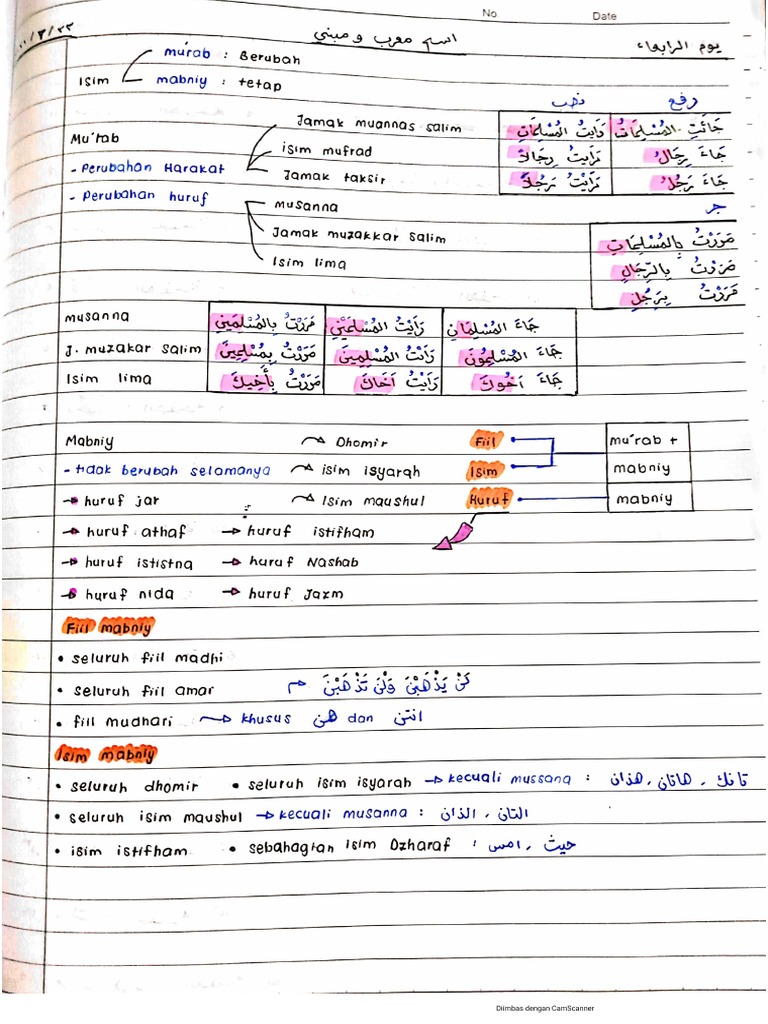 No
Date
يوم الرابعاء
اسم معرب و مبني
mu'rab : Berubah
Isim
mabniy : tetap
رفع
نصب
Jamak muannas salim
جَائَتِ المُسْلِمَاتُ
رَايتُ المُسْلِمَاتِ
Mu'rab
isim mufrad
جَاءَ رِجَالٌ
رَايتُ رِجَالاً
- Perubahan Harakat
Jamak taksir
جَاءَ رَجُلٌ
رَايْتُ رَجُلاً
- Perubahan huruf
musanna
جر
Jamak muzakkar salim
مَرَرْتُ بِالمُسْلِمَاتِ
Isim lima
مَرَرْتُ بِالرِّجَالِ
مَرَرْتُ بِرَجُلٍ
musanna
جَاءَ المُسْلِمَانِ
رَايْتُ المُسْلِمَيْنِ
مَرَرْتُ بِالمُسْلِمَيْنِ
J. muzakar salim
جَاءَ المُسْلِمُونَ
رَايْتُ المُسْلِمِينَ
مَرَرْتُ بِمُسْلِمِينَ
Isim lima
جَاءَ اَخُوكَ
رَايْتُ اَخَاكَ
مَرَرْتُ بِأَخِيكَ
Mabniy
Dhomir
Fiil
mu'rab +
- tidak berubah selamanya
isim isyarah
Isim
mabniy
huruf jar
Isim maushul
Huruf
mabniy
huruf athaf
huruf istifham
huruf ististna
huruf Nashab
huruf nida
huruf Jazm
Fiil mabniy
• seluruh fiil madhi
• seluruh fiil amar
يَذْهَبْنَ
تَذْهَبْنَ
• fiil mudhari → khusus هن dan انتن
Isim mabniy
• seluruh dhomir • seluruh isim isyarah → kecuali mussana : هذان ، هاتان ، تانك
• seluruh isim maushul → kecuali musanna : الذان ، التان
• isim istifham • sebahagian isim Dzharaf : امس ، حيث
Diimbas dengan CamScanner